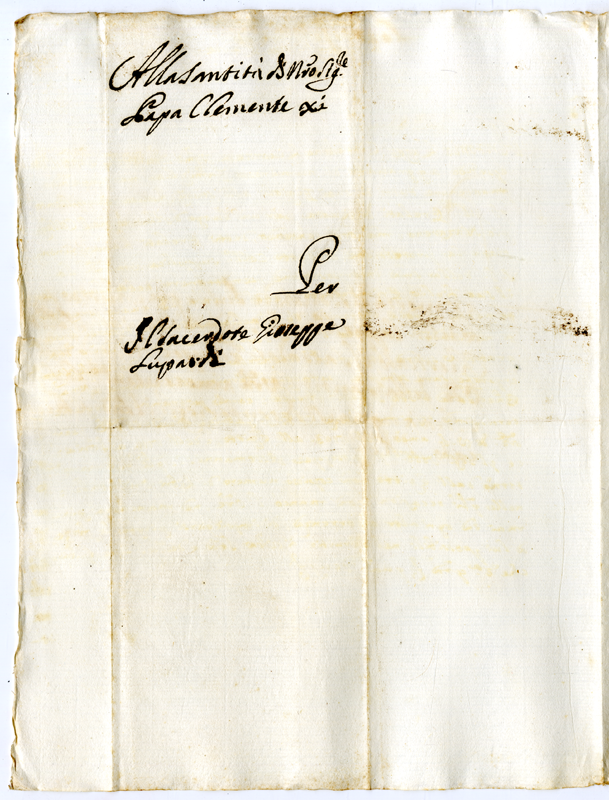 Alla Santità di Nro Sig.re
Papa Clemente XI
Per
Il Sacerdote Giuseppe
Lupardi